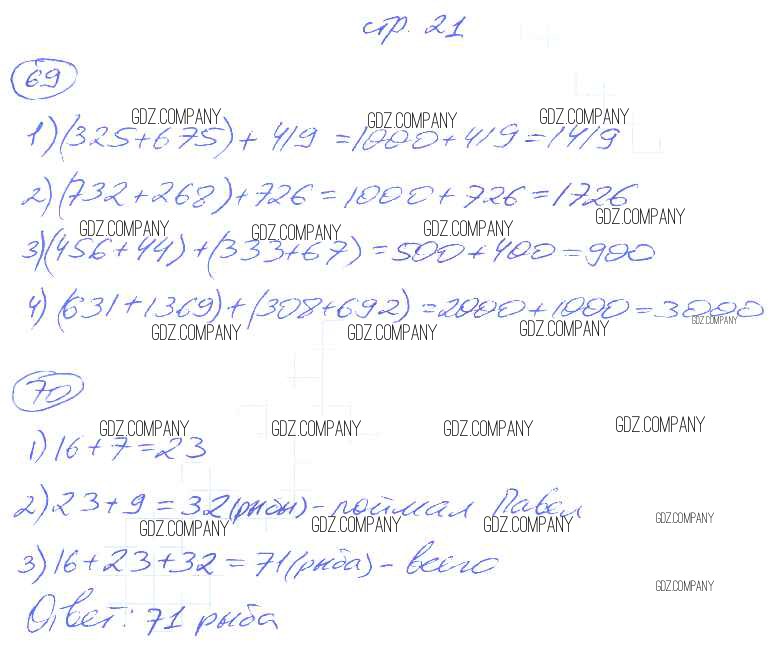 стр. 21
69
GDZ.COMPANY GDZ.COMPANY GDZ.COMPANY
1) (325+675) + 419 = 1000 + 419 = 1419
2) (732 + 268) + 726 = 1000 + 726 = 1726
GDZ.COMPANY GDZ.COMPANY GDZ.COMPANY GDZ.COMPANY
3) (456+44) + (333+67) = 500 + 400 = 900
4) (631 + 1369) + (308 + 692) = 2000 + 1000 = 3000
GDZ.COMPANY GDZ.COMPANY GDZ.COMPANY GDZ.COMPANY
70
GDZ.COMPANY GDZ.COMPANY GDZ.COMPANY GDZ.COMPANY
1) 16 + 7 = 23
2) 23 + 9 = 32 (рыбы) - поймал Павел
GDZ.COMPANY GDZ.COMPANY GDZ.COMPANY GDZ.COMPANY
3) 16 + 23 + 32 = 71 (рыба) - всего
GDZ.COMPANY
Ответ: 71 рыба